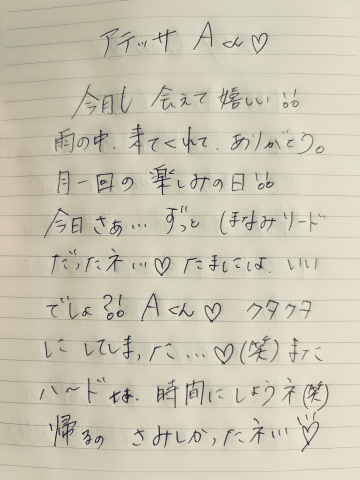 アテッサ Aくん♡
今月も 会えて嬉しい!!
雨の中、来てくれて、ありがとう。
月一回の 楽しみの日!!
今日さぁ… ずっと まなみリード
だったネ…♡ たまには、いい
でしょ?!! Aくん♡ クタクタ
にしてしまった…♡(笑)また
ハードな、時間にしようネ(笑)
帰るの さみしかったネ…♡